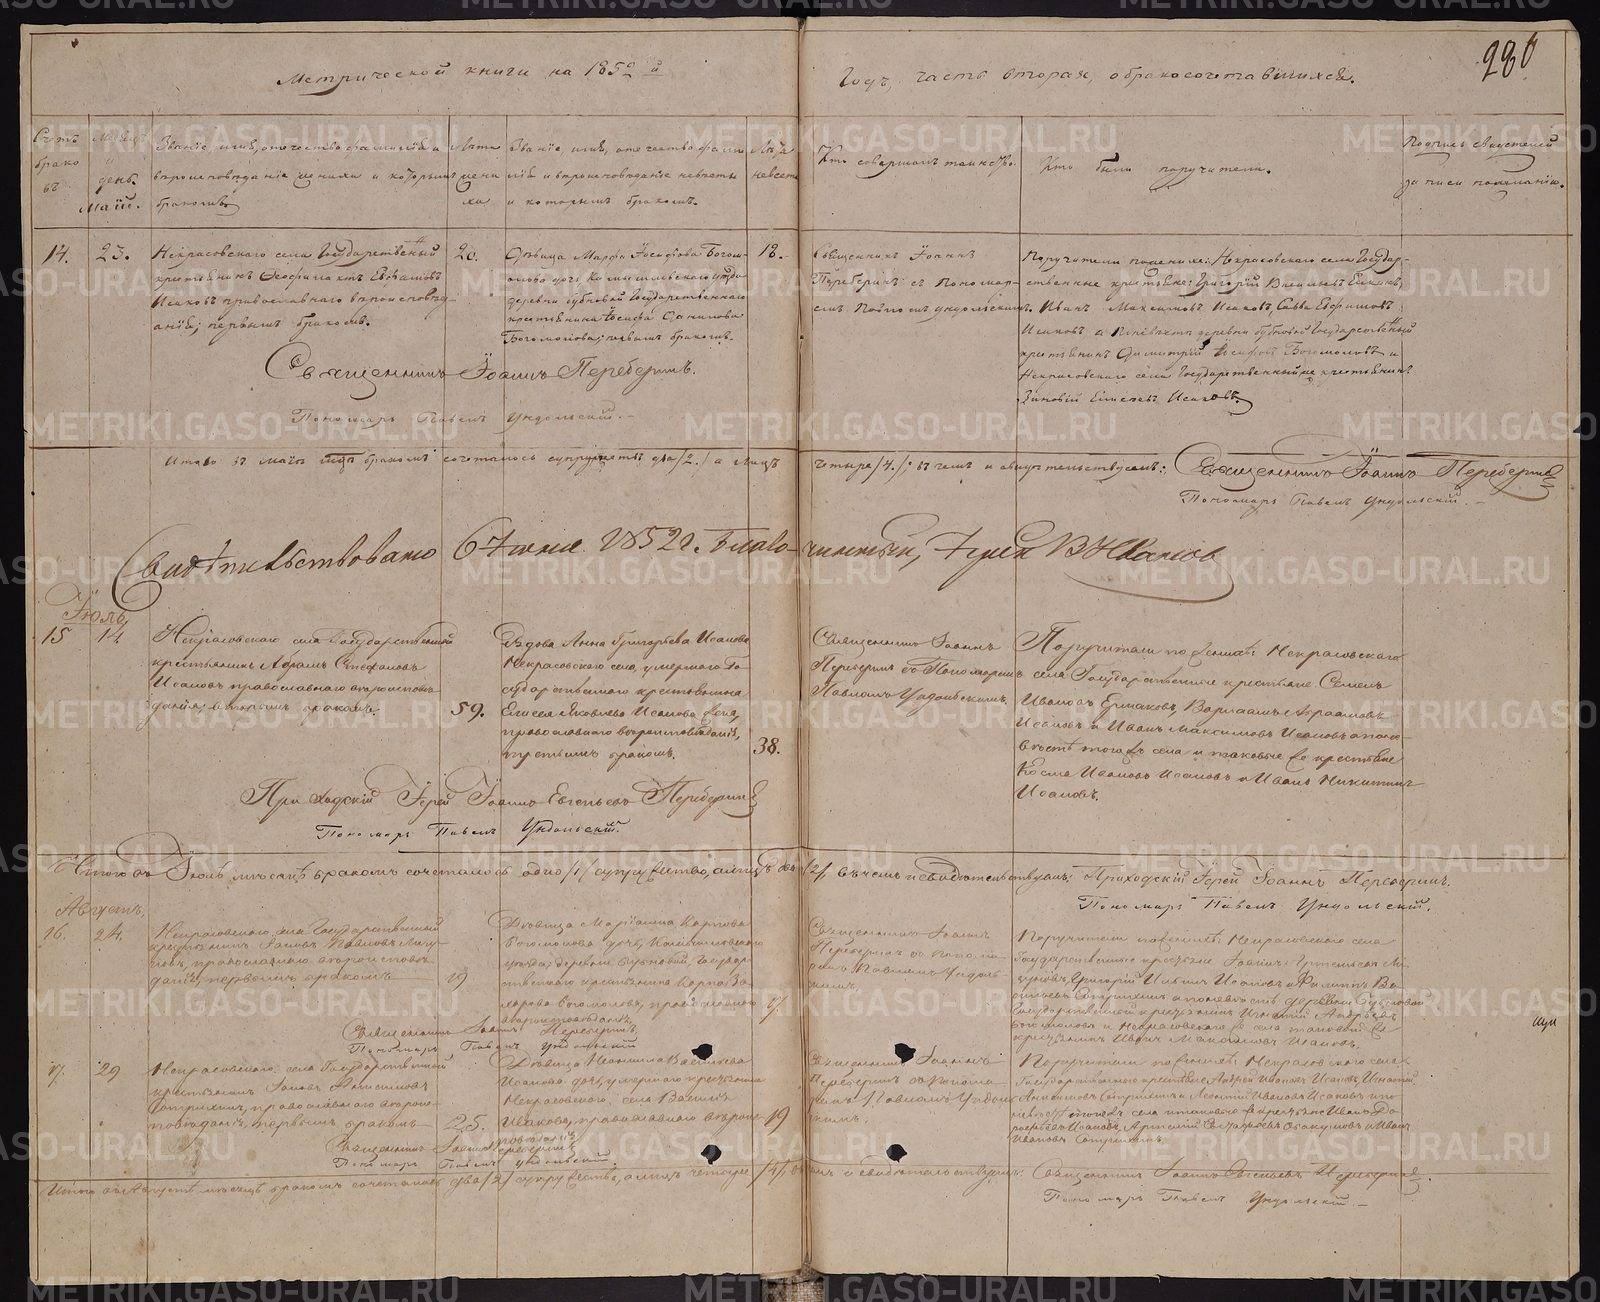 Метрической книги на 1852й
годъ, часть вторая, о бракосочетавшихся.
280
Счетъ
брако
въ
Мѣсяцъ
и
день.
Маій.
Званіе, имя, отечество, фамилія и
вѣроисповѣданіе жениха и которымъ
бракомъ
Лѣта
жени
ха
Званіе, имя, отечество, фами
лія и вѣроисповѣданіе невѣсты
и которымъ бракомъ.
Лѣта
невѣсты
Кто совершалъ таинство.
Кто были поручители.
Подпись свидѣтелей
записи по желанію.
14.
23.
Некрасовскаго села Государственный
крестьянинъ Ѳеофилактъ Евфимовъ
Исаковъ православнаго вѣроисповѣд-
анія; первымъ бракомъ.
20.
Дѣвица Марѳа Іосифова Богом-
олова дочь Камышловскаго уѣзда
деревни Бубновой Государственнаго
крестьянина Іосифа Данилова
Богомолова; первымъ бракомъ.
18.
Священникъ Іоаннъ
Переберинъ съ Пономар-
емъ Павломъ Ундольскимъ.
Поручители по женихѣ: Некрасовскаго села Государ-
ственные крестьяне: Григорій Васильевъ
Иванъ Максимовъ Исаковъ, Савва Евфимовъ
Исаковъ а по невѣстѣ деревни Бубновой Государственный
крестьянинъ Димитрій Іосифовъ Богомоловъ и
Некрасовскаго села Государственный крестьянинъ
Зиновій Елисеевъ Исаковъ.
Священникъ Іоаннъ Переберинъ.
Пономарь Павелъ Ундольскій.
Итого въ Маіѣ бракомъ сочеталось супружествъ два /2./ а лицъ
четыре /4./; въ чемъ и свидѣтельствуемъ: Священникъ Іоаннъ Переберинъ
Пономарь Павелъ Ундольскій.
Свидѣтельствовано 6 Іюня 1852 г. Благо-
чинный, Іерей В Ивановъ
Іюль
15
14
Некрасовскаго села Государственный
крестьянинъ Абрамъ Стефановъ
Исаковъ православнаго вѣроисповѣ-
данія, вторымъ бракомъ.
59.
Вдова Анна Григорьева Исакова
Некрасовскаго села, умершаго Го-
сударственнаго крестьянина
Елисея Яковлева Исакова жена,
православнаго вѣроисповѣданія,
третьимъ бракомъ.
38.
Священникъ Іоаннъ
Переберинъ съ Пономаремъ
Павломъ Ундольскимъ.
Поручители по женихѣ: Некрасовскаго
села Государственные крестьяне Семенъ
Ивановъ Ермаковъ, Варлаамъ Авраамовъ
Исаковъ и Иванъ Максимовъ Исаковъ а по не-
вѣстѣ тогожъ села и таковые же крестьяне
Косма Ивановъ Исаковъ и Иванъ Никитинъ
Исаковъ.
Приходскій Іерей Іоаннъ Евгеньевъ Переберинъ
Пономарь Павелъ Ундольскій.
Итого въ Іюлѣ мѣсяцѣ бракомъ сочеталось одно /1/ супружество, а лицъ два /2/ въ чемъ и свидѣтельствуемъ: Приходскій Іерей Іоаннъ Переберинъ.
Пономарь Павелъ Ундольскій.
Августъ.
16.
24.
Некрасовскаго села Государственный
крестьянинъ Іаковъ Павловъ
православнаго вѣроисповѣ-
данія, первымъ бракомъ
19
Дѣвица Маріанна Карпова
Богомолова дочь, Камышловскаго
уѣзда, деревни Бубновой, Государ-
ственнаго крестьянина Карпа За-
харова Богомолова, православнаго
вѣроисповѣданія.
17.
Священникъ Іоаннъ
Переберинъ съ Понома-
ремъ Павломъ Ундоль-
скимъ.
Поручители по женихѣ: Некрасовскаго села
Государственные крестьяне Іоаннъ
Григорій Ильинъ Исаковъ и Филиппъ Ва-
сильевъ а по невѣстѣ деревни Бубновой
Государственный крестьянинъ Игнатій Андреевъ
Богомоловъ и Некрасовскаго же села таковой же
крестьянинъ Иванъ Максимовъ Исаковъ.
Священникъ Іоаннъ Переберинъ,
Пономарь Павелъ Ундольскій
17.
29
Некрасовскаго села Государственный
крестьянинъ Іаковъ Анисимовъ
православнаго вѣроис-
повѣданія, первымъ бракомъ
25.
Дѣвица Васильева
Исакова дочь, умершаго крестьянина
Некрасовскаго села Василія
Исакова, православнаго вѣроис-
повѣданія
19
Священникъ Іоаннъ
Переберинъ съ Понома-
ремъ Павломъ Ундоль-
скимъ.
Поручители по женихѣ: Некрасовскаго села
Государственные крестьяне Андрей Ивановъ Исаковъ, Игнатій
Анисимовъ и Леонтій Ивановъ Исаковъ а по
невѣстѣ тогожъ села таковые же крестьяне Иванъ
Исаковъ, и Иванъ
Ивановъ
Священникъ Іоаннъ Переберинъ
Пономарь Павелъ Ундольскій
Итого въ Августѣ мѣсяцѣ бракомъ сочеталось два /2/ супружества, а лицъ четыре /4/ въ чемъ и свидѣтельствуемъ: Священникъ Іоаннъ Евгеньевъ Переберинъ.
Пономарь Павелъ Ундольскій.
METRIKI.GASO-URAL.RU